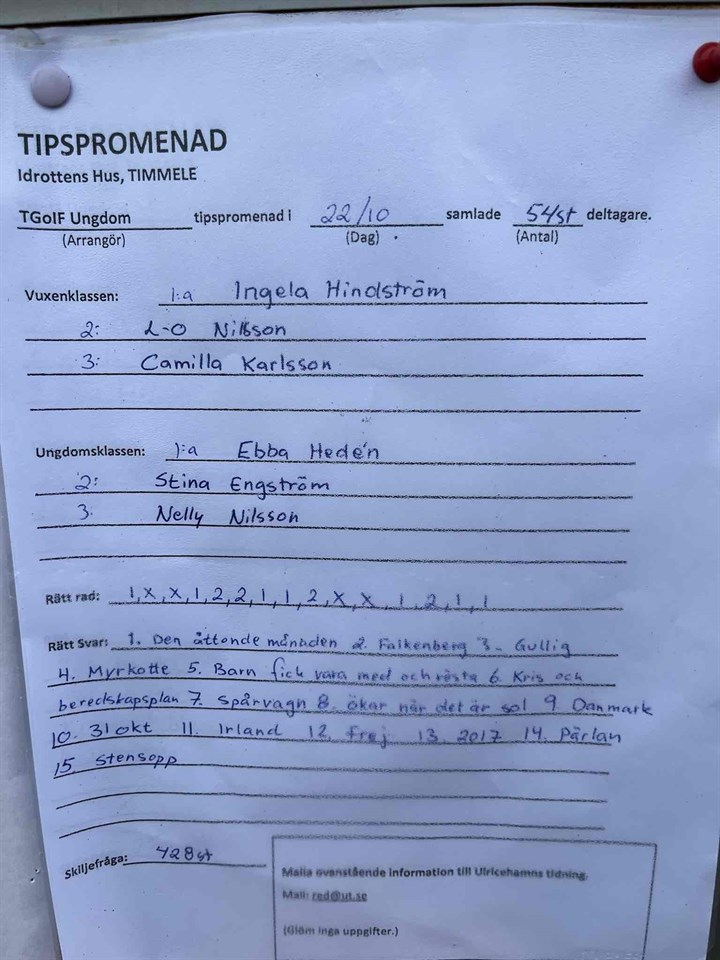 TIPSPROMENAD
Idrottens Hus, TIMMELE
TGoIF Ungdom tipspromenad i 22/10 samlade 54st deltagare.
(Arrangör) (Dag) (Antal)
Vuxenklassen: 1:a Ingela Hindström
2: L-O Nilsson
3: Camilla Karlsson
Ungdomsklassen: 1:a Ebba Hedén
2: Stina Engström
3. Nelly Nilsson
Rätt rad: 1,X,X,1,2,2,1,1,2,X,X,1,2,1,1
Rätt Svar: 1. Den åttonde månaden 2. Falkenberg 3. Gullig
4. Myrkotte 5. Barn fick vara med och rösta 6. Kris och
beredskapsplan 7. Spårvagn 8. ökar när det är sol 9. Danmark
10. 31 okt 11. Irland 12. Frej 13. 2017 14. Pärlan
15. Stensopp
Skiljefråga: 428st
Maila ovanstående information till Ulricehamns tidning.
Mail: red@ut.se
(Glöm inga uppgifter.)